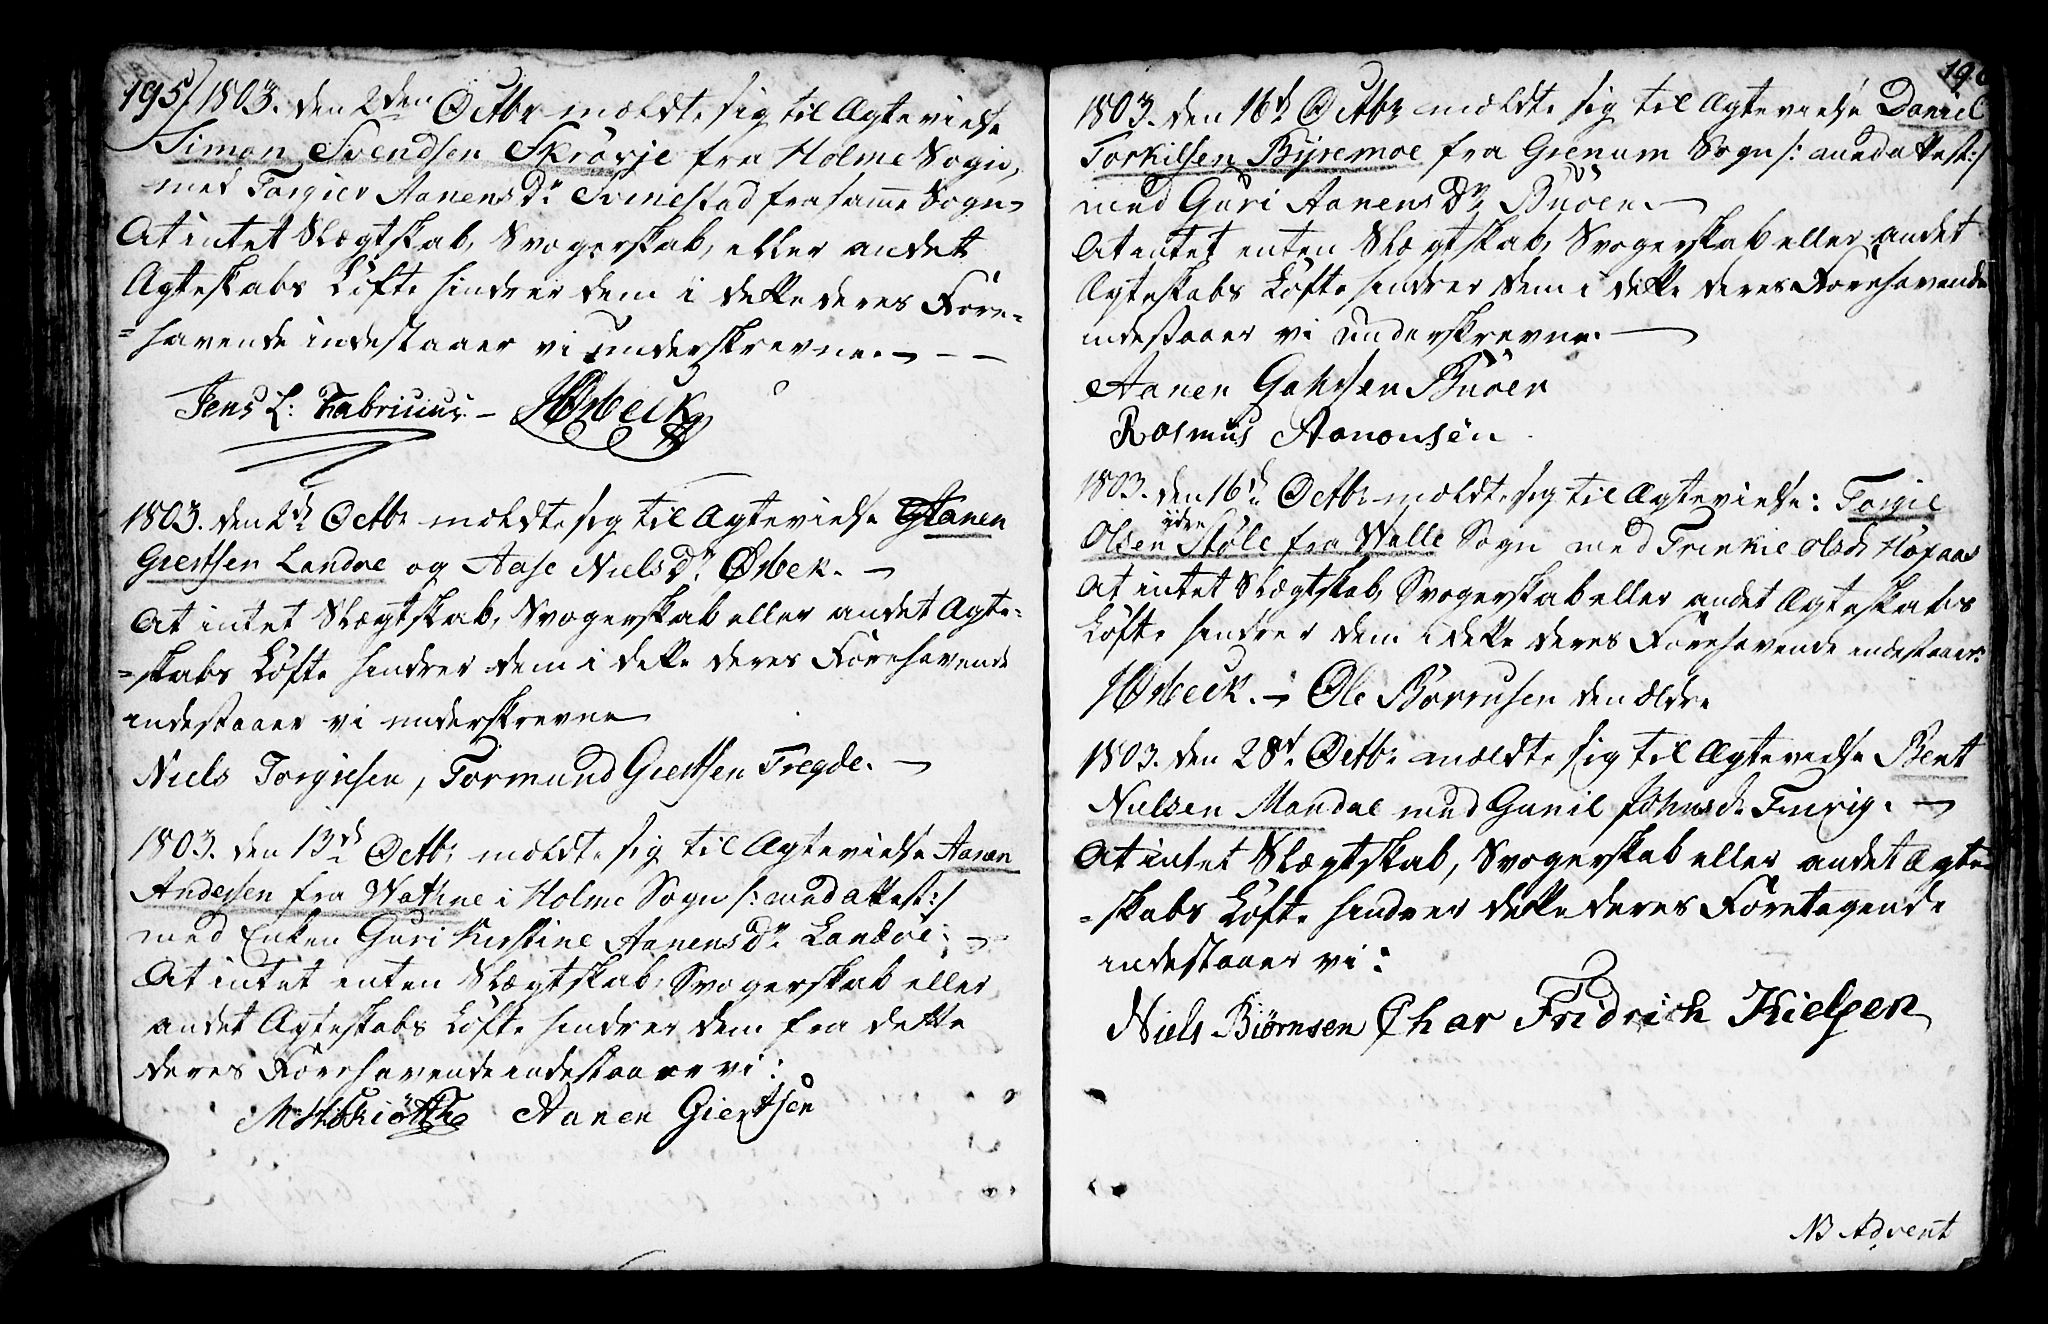 195/ 1803. den 2den Octbr mældte sig til Ægtevielse
Simon Svendsen Skrövje fra Holme Sogn,
med Torgier Aanens Dr Svinestad fra samme Sogn
At intet Slægtskab, Svogerskab, eller andet
Ægteskabs Löfte hindrer dem i dette deres Fore-
=havende indestaaer vi underskrevne. - -
Jens L: Fabricius. - Örbeck
1803. den 2d Octbr mældte sig til Ægtevielse Aanen
Giertsen Landöe og Aase Niels Dr Örbek. -
At intet Slægtskab, Svogerskab eller andet Ægte-
=skabs Löfte hindrer dem i dette deres Forehavende
indestaaer vi underskrevne
Niels Torgiesen, Tormund Giertsen Tregde. -
1803. den 13d Octbr mældte sig til Ægtevielse Aanen
Andersen fra Wathne i Holme Sogn /: med attest :/
med Enken Guri Kirstine Aanens Dr Landöe. -
At intet enten Slægtskab, Svogerskab eller
andet Ægteskabs Löfte hindrer dem fra dette
deres Forehavende indestaaer vi:
Aanen Giertsen
196
1803. den 16d Octbr mældte sig til Ægtevielse Daniel
Torkilsen Byremoe fra Grenum Sogn /: med attest :/
med Guri Aanens Dr Buöen. -
At intet enten Slægtskab, Svogerskab eller andet
Ægteskabs Löfte hindrer dem i dette deres Forehavende
indestaaer vi underskrevne. -
Aanen Gahrsen Buöen
Rasmus Aanonsen
1803. den 16d Octbr mældte sig til Ægtevielse: Torgie
Olsen ydre Stöle fra Walle Sogn med Trinkie Olsdr Höyaas
At intet Slægtskab, Svogerskab eller andet Ægteskabs
Löfte hindrer dem i dette deres Forehavende indestaaer:
Örbeck. - Ole Börrusen den ældre
1803. den 28d Octbr mældte sig til Ægtevielse Bent
Nielsen Mandal med Gunil Johnsdr Furig. -
At intet Slægtskab, Svogerskab eller andet Ægte-
=skabs Löfte hindrer dette deres Foretagende
indestaaer vi:
Niels Biörnsen Char Fridrich Kielsen
NB Advent